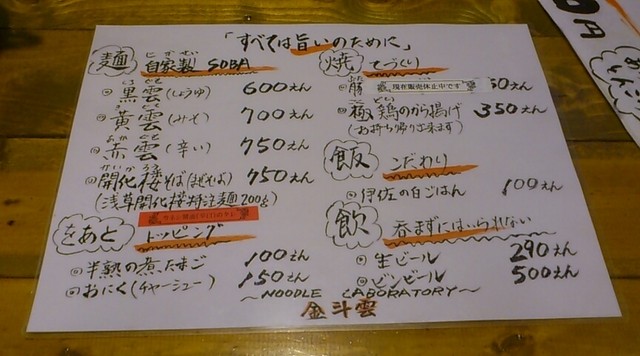 「すべては旨いのために」
麺 自家製 SOBA
黒雲(しょうゆ) 600えん
黄雲(みそ) 700えん
赤雲(辛い) 750えん
開化楼そば(まぜそば) 750えん
(浅草開化楼特注麺200g)
をあと トッピング
半熟の煮たまご 100えん
おにく(チャーシュー) 150えん
焼 てづくり
豚 現在販売休止中です 50えん
極鶏のから揚げ 350えん
(お持ち帰り出来ます)
飯 こだわり
伊佐の白ごはん 100えん
飲 呑まずにはいられない
生ビール 290えん
ビンビール 500えん
〜NOODLE LABORATORY〜
金斗雲
円